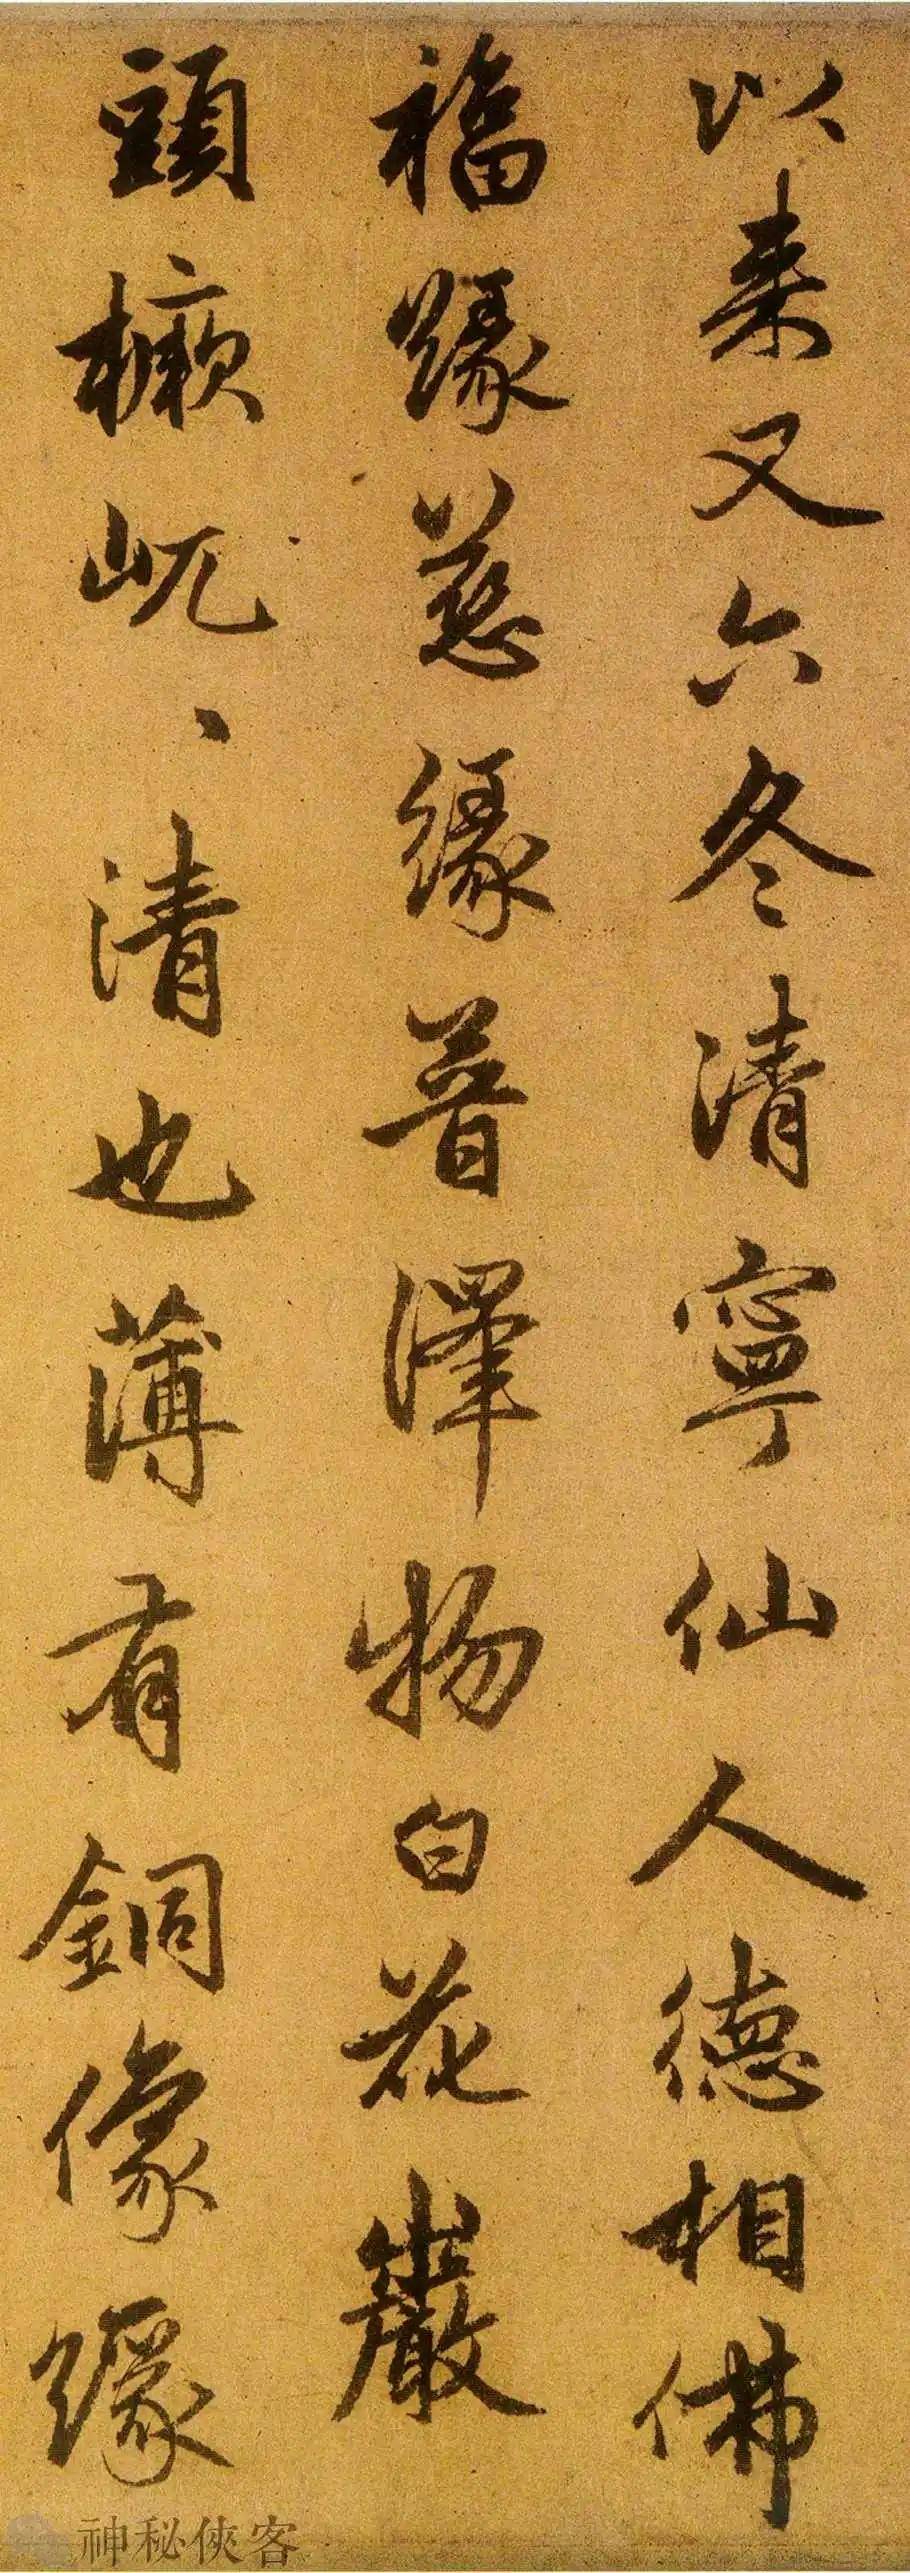 以来又六冬清寧仙人德相佛
福緣慈緣普澤物白花巖
頭橛屼、清也薄有銅像緣
神秘俠客